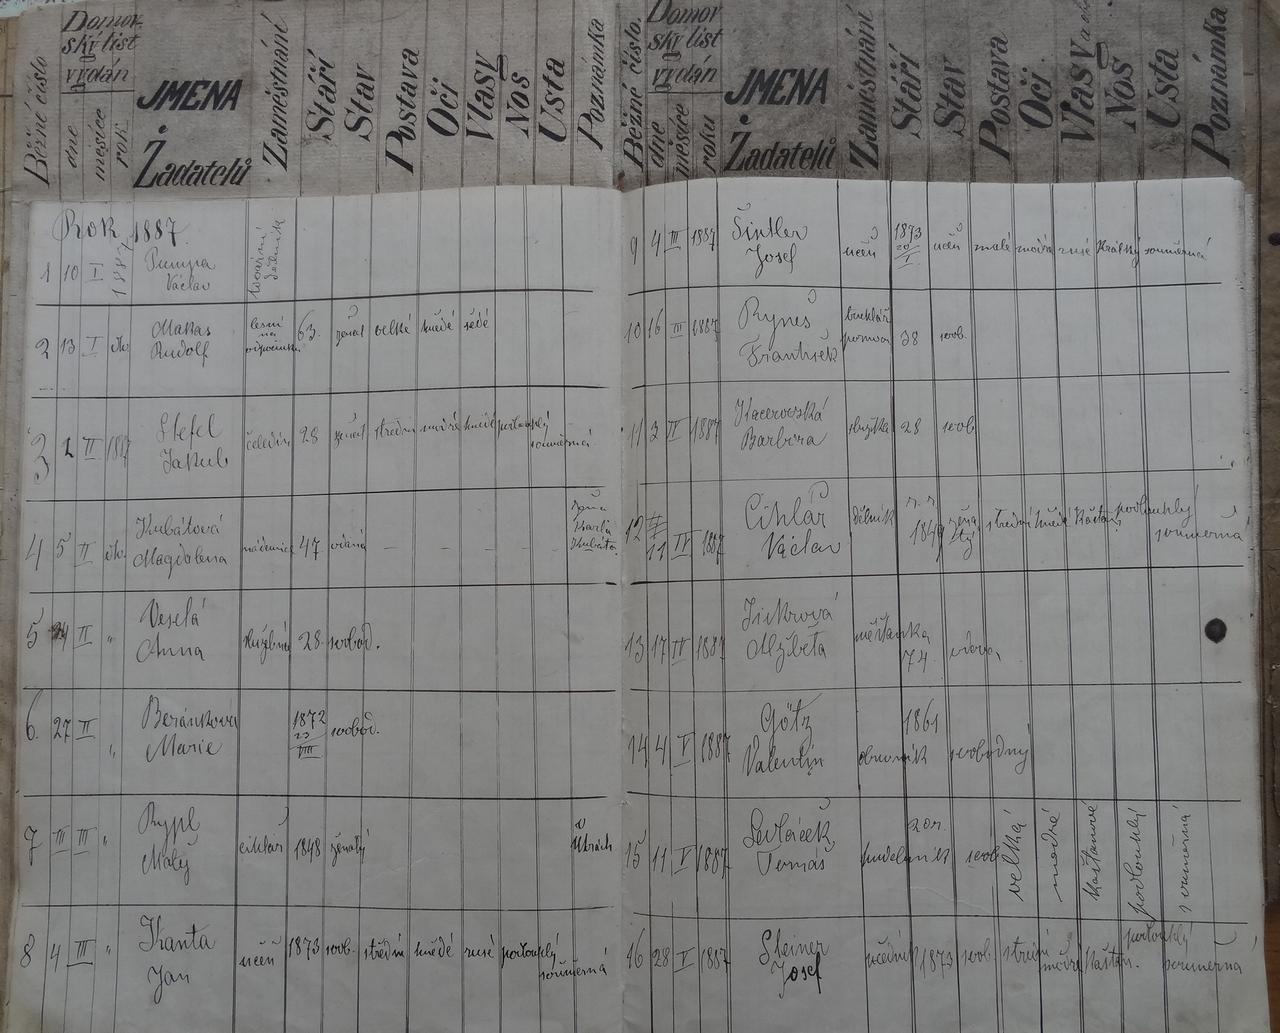 Běžné číslo Domovský list vydán dne měsíce rok JMÉNA Žadatelů Zaměstnání Stáří Stav Postava Oči Vlasy Nos Ústa Poznámka
Rok 1887.
1 10 I 1887 Pumpa Václav tovární dělník
2 13 I dto Makas Rudolf lesní na odpočinku 63. ženat velké hnědé šedé
3 1 II 1887 Stefel Jakub čeledín 28 ženat střední modré hnědé podlouhlý souměrná
4 5 II dto. Kubátová Magdalena nádenice 47 vdaná – – – – – žena Karla Kubáta.
5 II " Veselá Anna služebná 28 svobod.
6. 27 II " Beránková Marie 1872 23/VIII svobod.
7 III III " Rypl Matěj cihlář 1848 ženatý v Uhrách
8 4 III " Kanta Jan učeň 1873 svob. střední hnědé rusé podlouhlý souměrná
Běžné číslo. Domovský list vydán dne měsíce roku JMÉNA Žadatelů Zaměstnání Stáří Stav Postava Oči Vlasy Nos Ústa Poznámka
9 4 III 1887 Šintler Josef učeň 1873 20/I učeň malé modré rusé krátký souměrná
10 16 III 1887 Ryneš František truhlář pomoc. 38 svob.
11 3 IV 1887 Kacerovská Barbora služka 28 svob
12 11 IV 1887 Cihlář Václav dělník n. r. 1849 ženatý střední hnědé kaštan. podlouhlý souměrná
13 17 IV 1887 Jiskrová Alžběta měšťanka 74. vdova,
14 4 V 1887 Götz Valentin obuvník 1861 svobodný
15 11 V 1887 Sedláček Tomáš pudelník 20 r. svob velká modré kaštanové podlouhlý souměrná
16 28 V 1887 Steiner Josef učedník 1873 svob. střední modré kaštan. podlouhlý souměrná